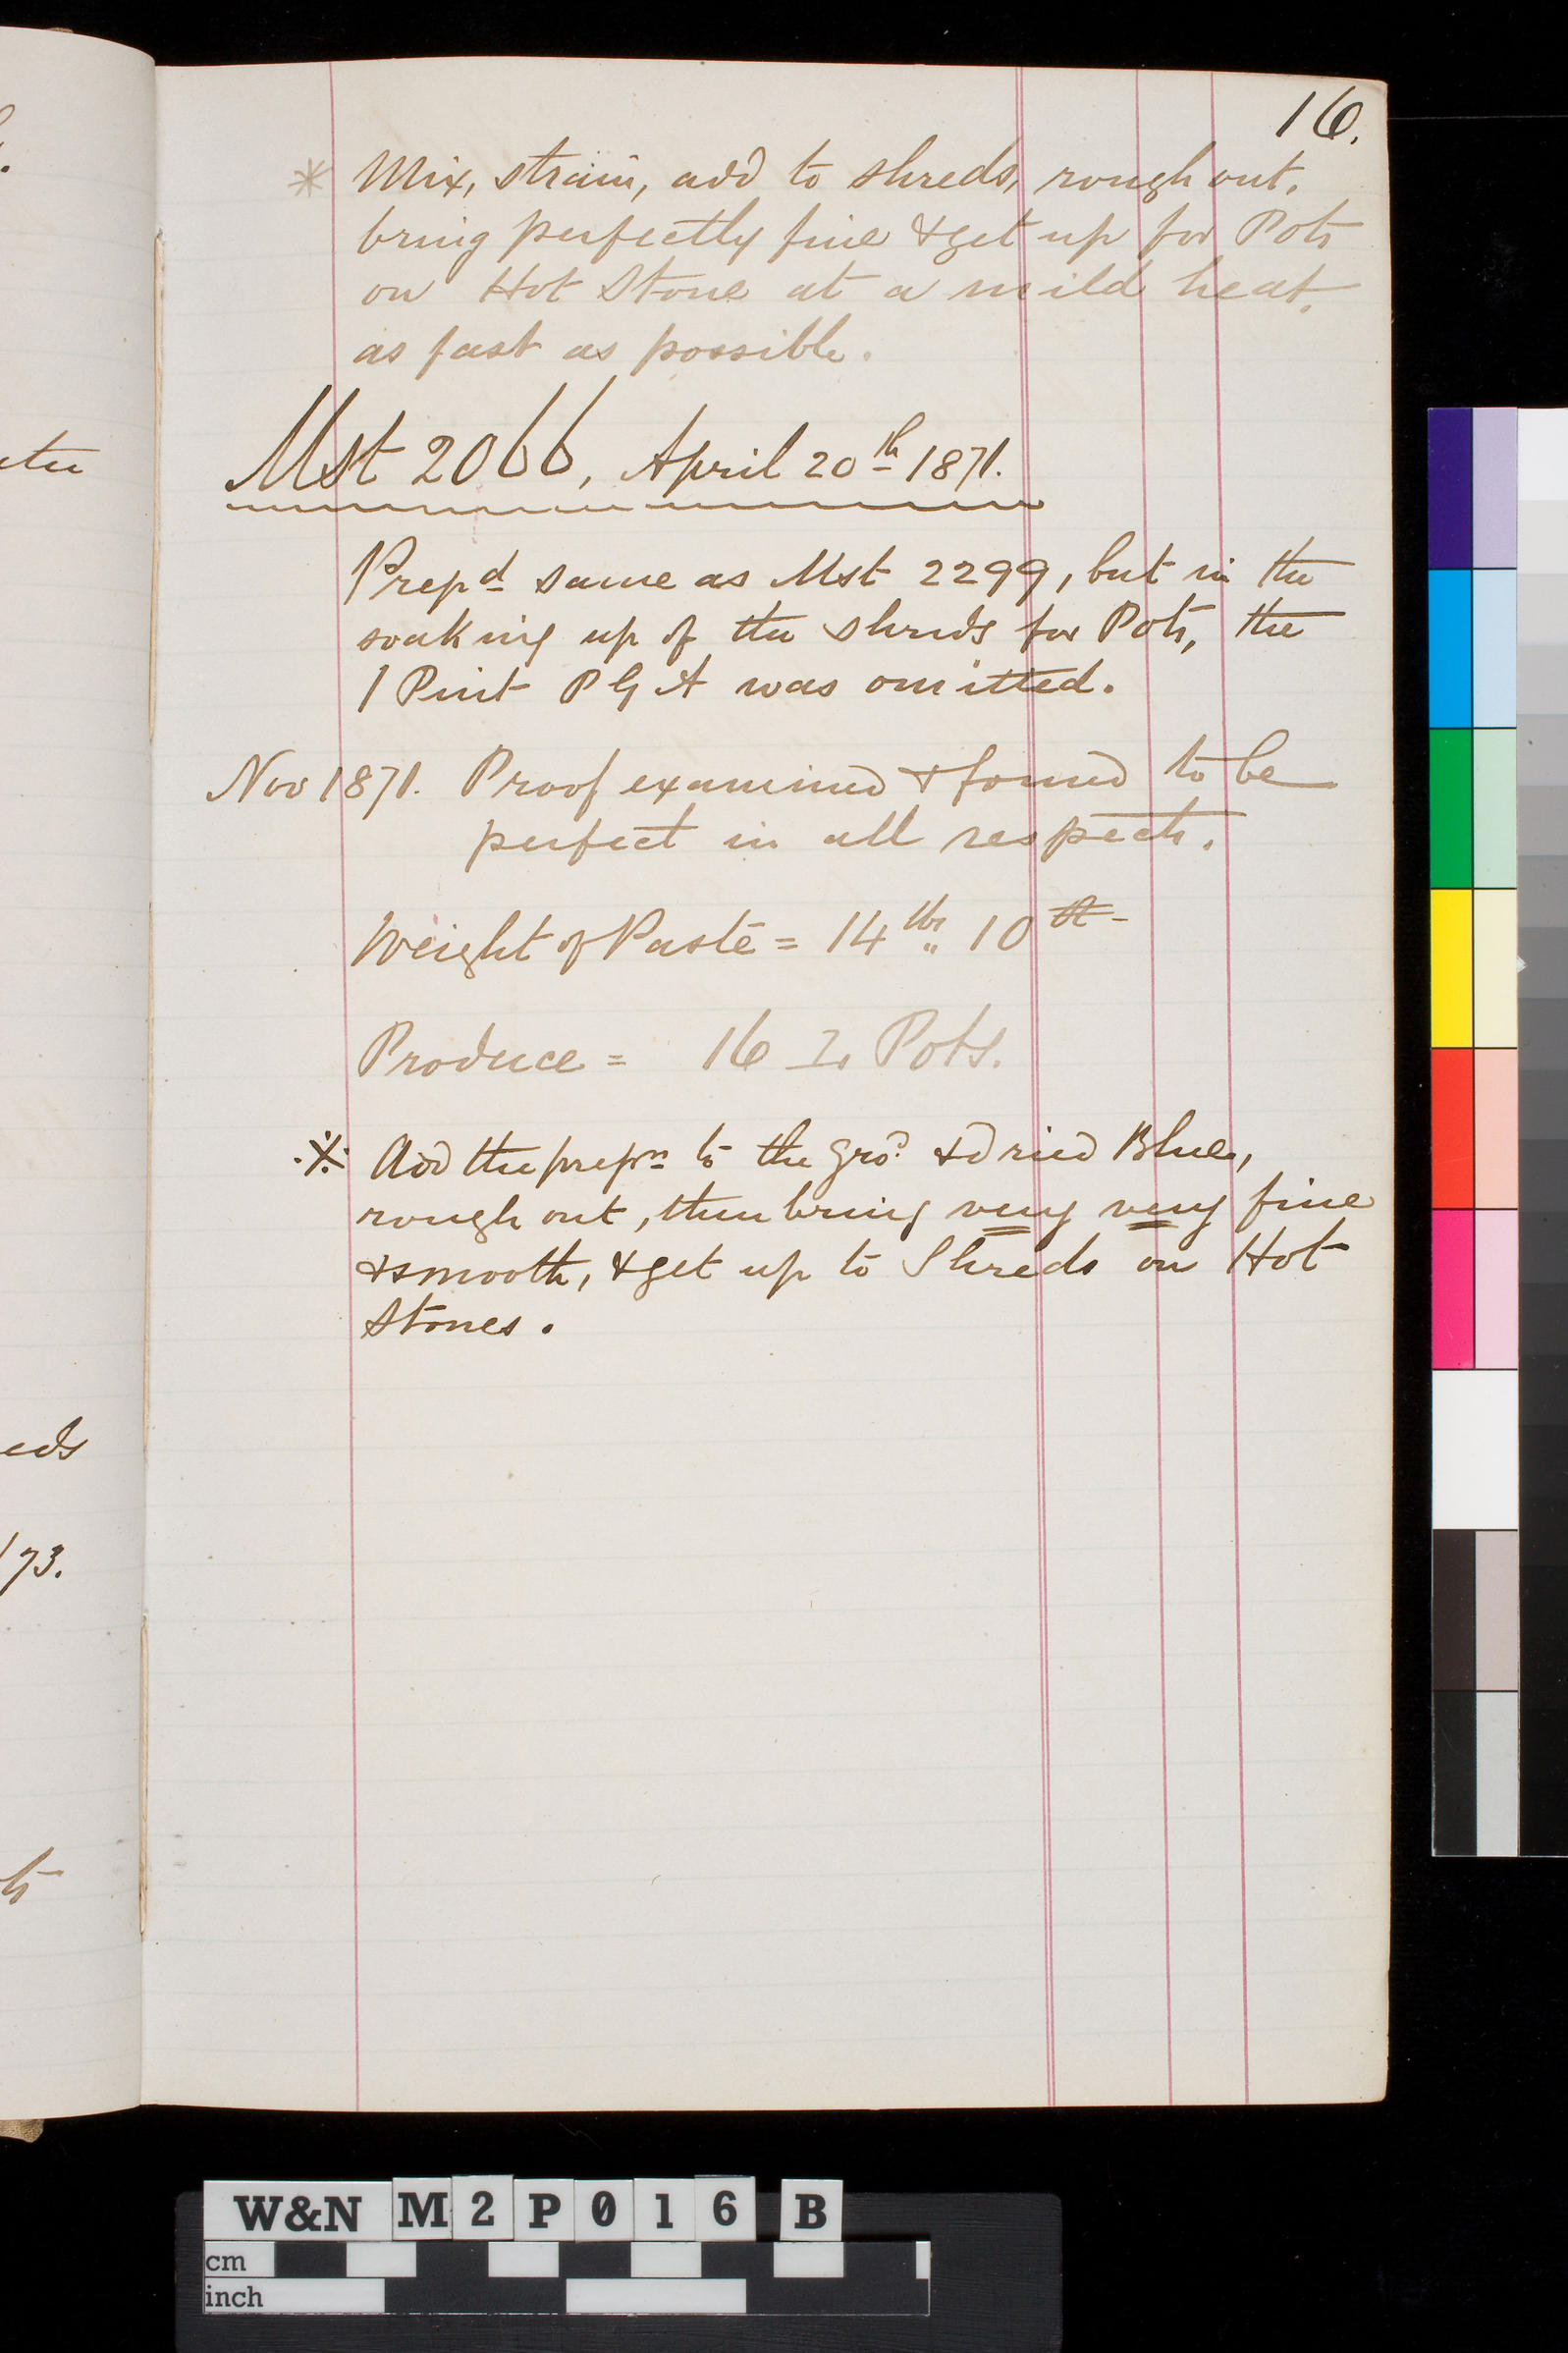 16.
* Mix, strain, add to shreds, rough out,
bring perfectly fine & get up for Pots
on Hot Stone at a mild heat,
as fast as possible.
Mst 2066, April 20th 1871.
Prepd same as Mst 2299, but in the
soaking up of the shreds for Pots, the
1 Pint P G A was omitted.
Nov 1871. Proof examined & found to be
perfect in all respects.
Weight of Paste = 14 lbs 10
Produce = 16 Pots.
※ Add the prepn to the grd & dried Blue,
rough out, then bring very very fine
& smooth, & get up to Shreds on Hot
Stones.
eds
173.
W&N M2P016 B
cm
inch